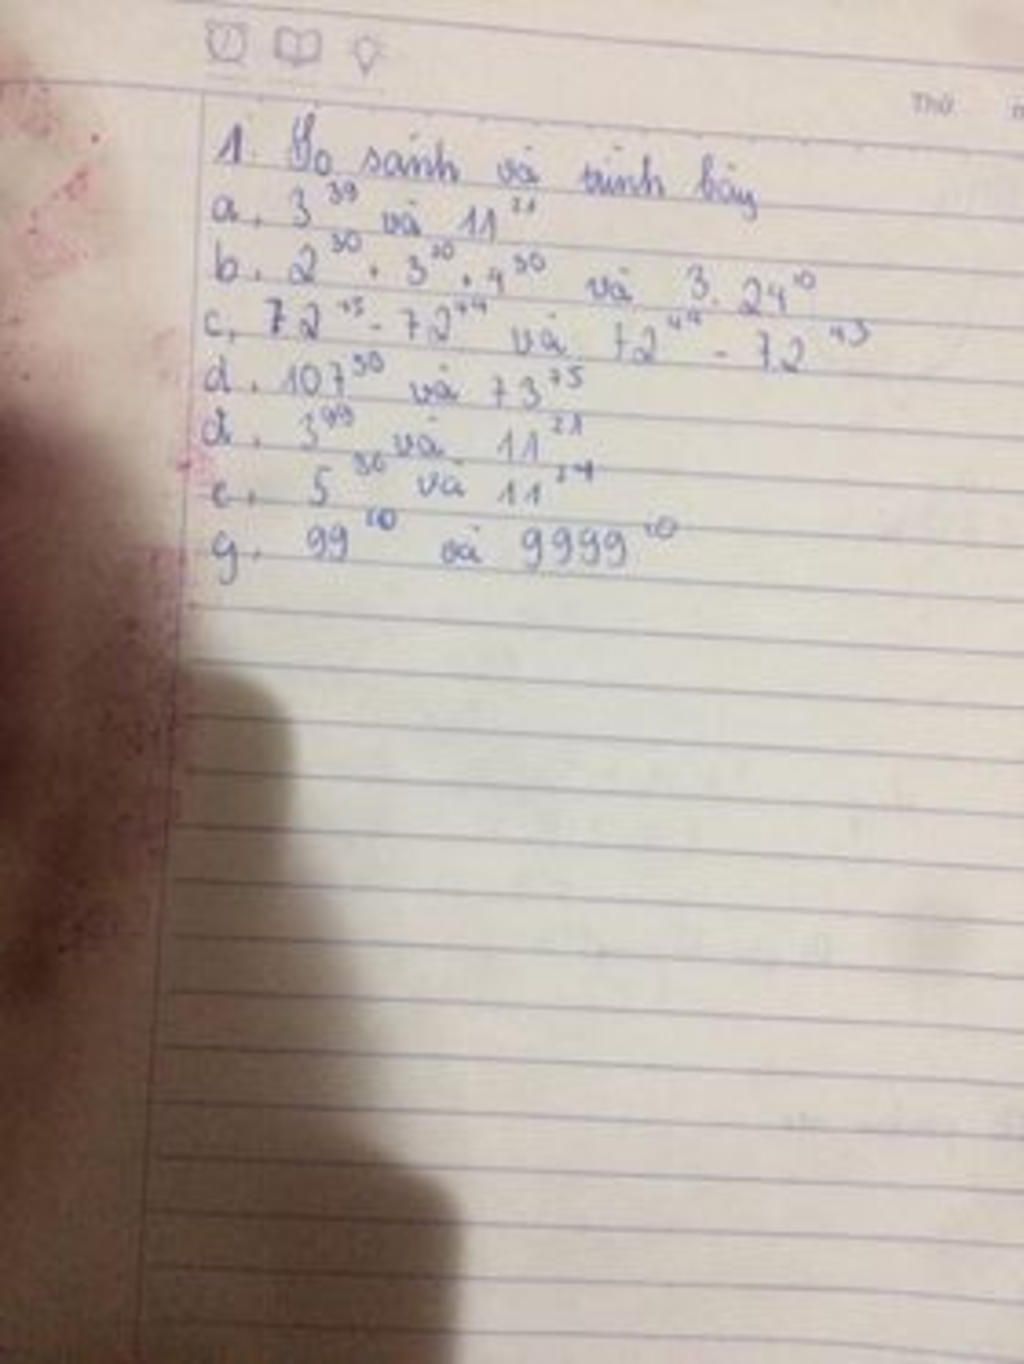 Thứ
1. So sánh và trình bày
a, 3^39 và 11^21
b. 2^30 . 3^30 . 4^30 và 3. 24^10
c, 72^45 - 72^44 và 72^44 - 72^43
d. 107^50 và 73^75
đ. 3^99 và 11^21
e. 5^36 và 11^24
g. 99^20 và 9999^10